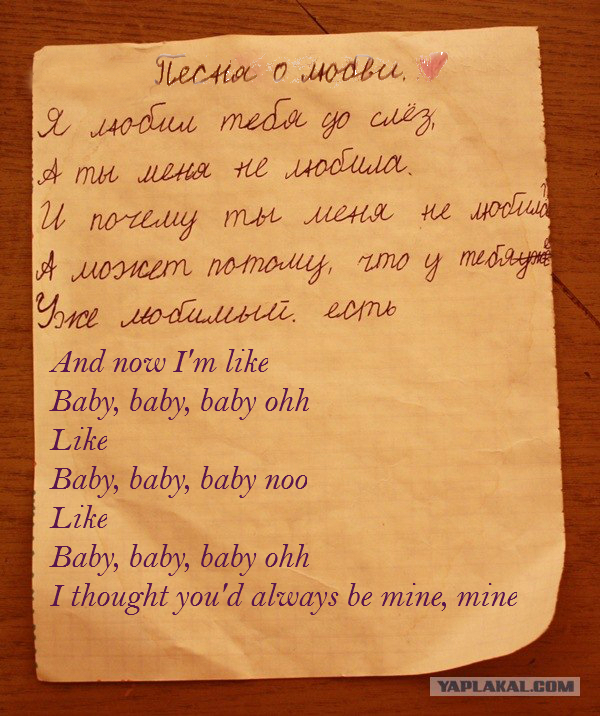 Песня о любви.
Я любил тебя до слёз,
А ты меня не любила.
И почему ты меня не любила
А может потому, что у тебя уже
Уже любимый. есть
And now I'm like
Baby, baby, baby ohh
Like
Baby, baby, baby noo
Like
Baby, baby, baby ohh
I thought you'd always be mine, mine
YAPLAKAL.COM